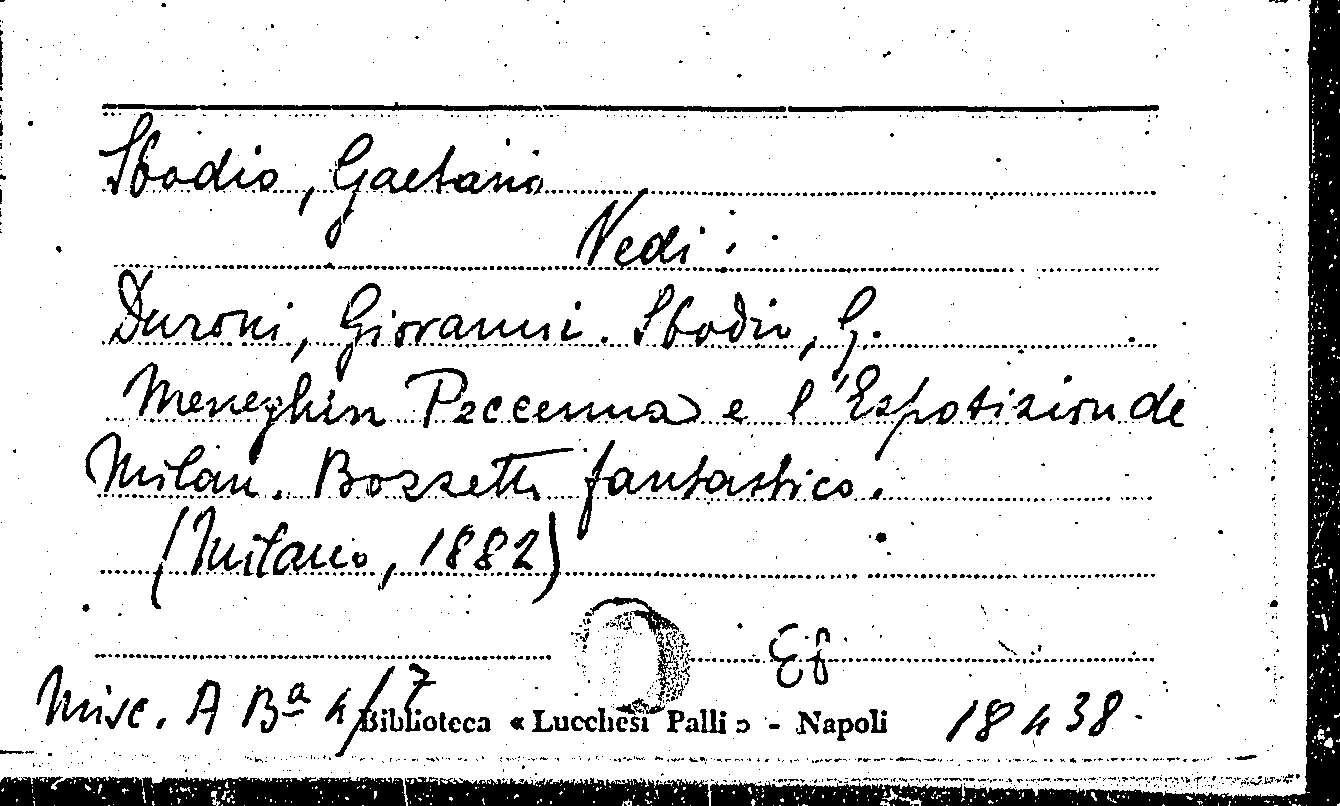 Sbodio, Gaetano
Vedi:
Duroni, Giovanni. Sbodio, G.
Meneghin Peccenna e l'Esposizion de
Milan. Bozzetto fantastico.
(Milano, 1882)
Ef
Misc. A Bª 4/7
Biblioteca « Lucchesi Palli » - Napoli
18438